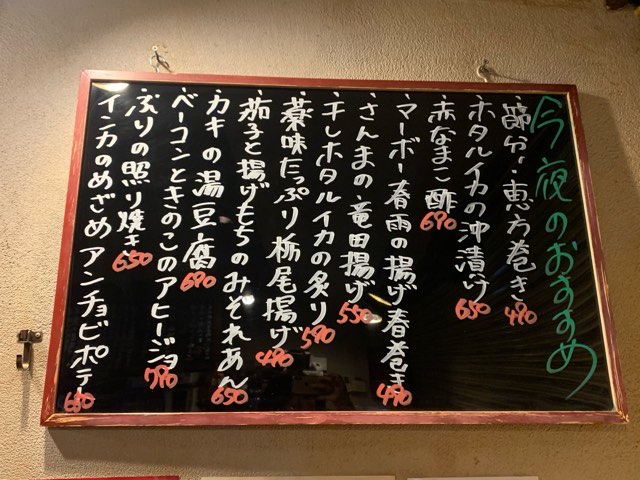 今夜のおすすめ
・節分・恵方巻き 490
・ホタルイカの沖漬け 650
・赤なまこ酢 690
・マーボー春雨の揚げ春巻き 490
・さんまの竜田揚げ 550
・干しホタルイカの炙り 590
・薬味たっぷり栃尾揚げ 490
・茄子と揚げもちのみぞれあん 650
・カキの湯豆腐 690
・ベーコンときのこのアヒージョ 790
・ぶりの照り焼き 650
・インカのめざめアンチョビポテト 680